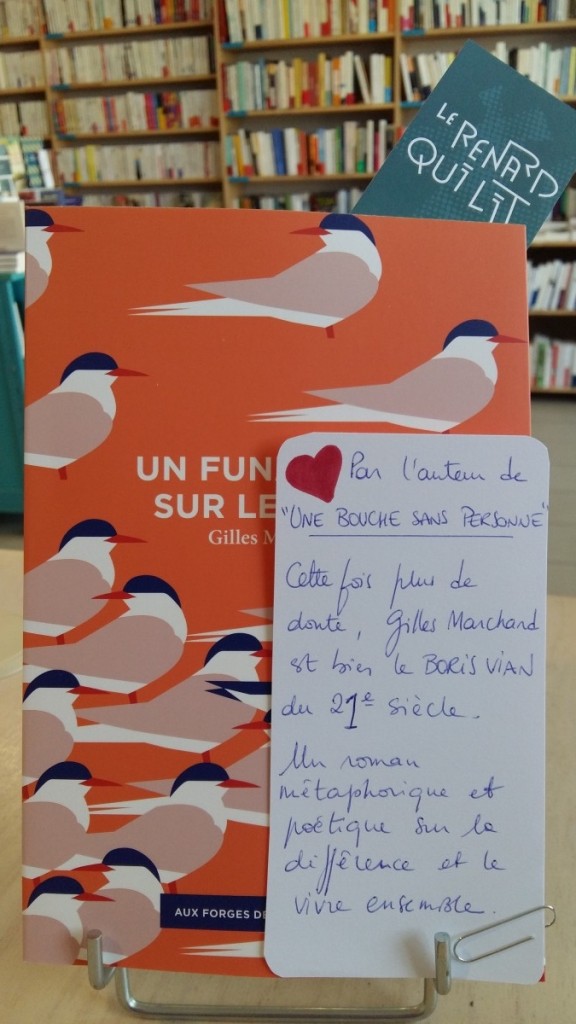 LE RENARD
QUI LIT
UN FUN
SUR LE
Gilles M
Par l'auteur de
"UNE BOUCHE SANS PERSONNE"
Cette fois plus de
doute, Gilles Marchand
est bien le BORIS VIAN
du 21e siècle.
Un roman
métaphorique et
poétique sur la
différence et le
vivre ensemble.
AUX FORGES DE